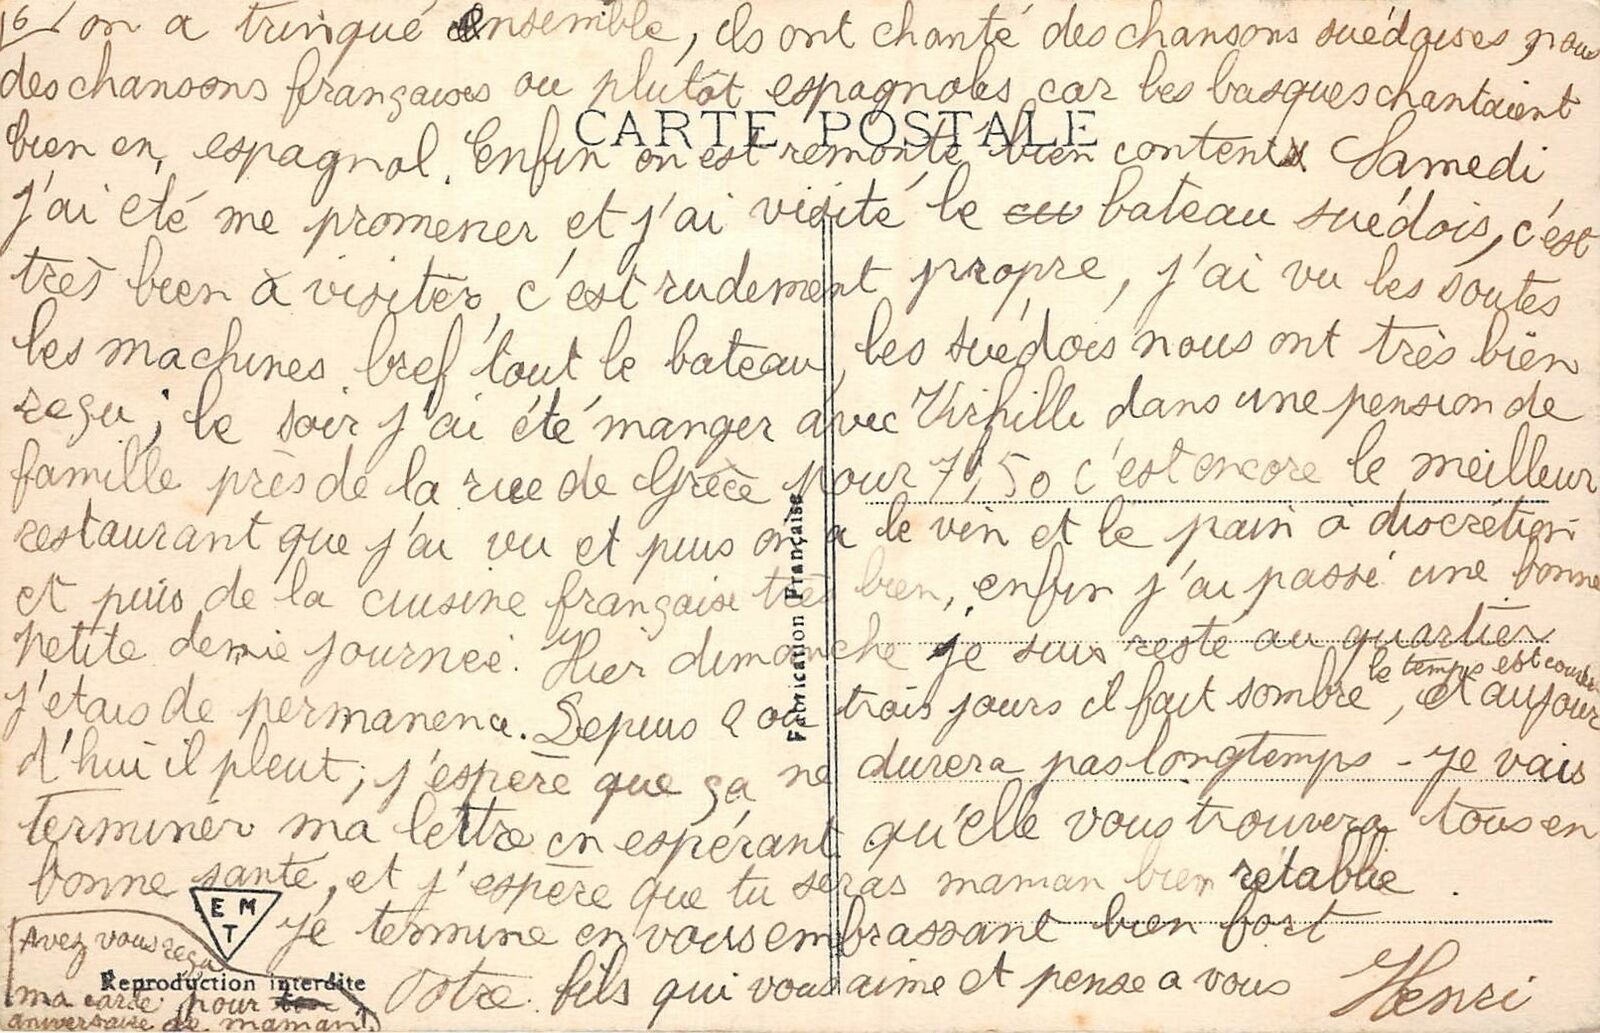 6/ on a trinqué ensemble, ils ont chanté des chansons suédoises nous
des chansons françaises ou plutôt espagnoles car les basques chantaient
CARTE POSTALE
bien en espagnol. Enfin on est remonté bien content Samedi
j'ai été me promener et j'ai visité le bateau suédois, c'est
très bien à visiter, c'est rudement propre, j'ai vu les soutes
les machines bref tout le bateau, les suédois nous ont très bien
reçu; le soir j'ai été manger avec Virgille dans une pension de
famille près de la rue de Grèce pour 7,50 c'est encore le meilleur
restaurant que j'ai vu et puis on a le vin et le pain à discrétion
et puis de la cuisine française très bien, enfin j'ai passé une bonne
petite demie journée. Hier dimanche je suis resté au quartier
j'etais de permanence. Depuis 2 ou trois jours il fait sombre, le temps est couvert et aujour
d'hui il pleut; j'espère que ça ne durera pas longtemps - je vais
terminer ma lettre en espérant qu'elle vous trouvera tous en
bonne santé, et j'espère que tu seras maman bien rétablie.
Je termine en vous embrassant bien fort
Votre fils qui vous aime et pense a vous Henri
Avez vous reçu
ma carte pour
aniversaire de maman
E M T
Reproduction interdite
Fabrication Française